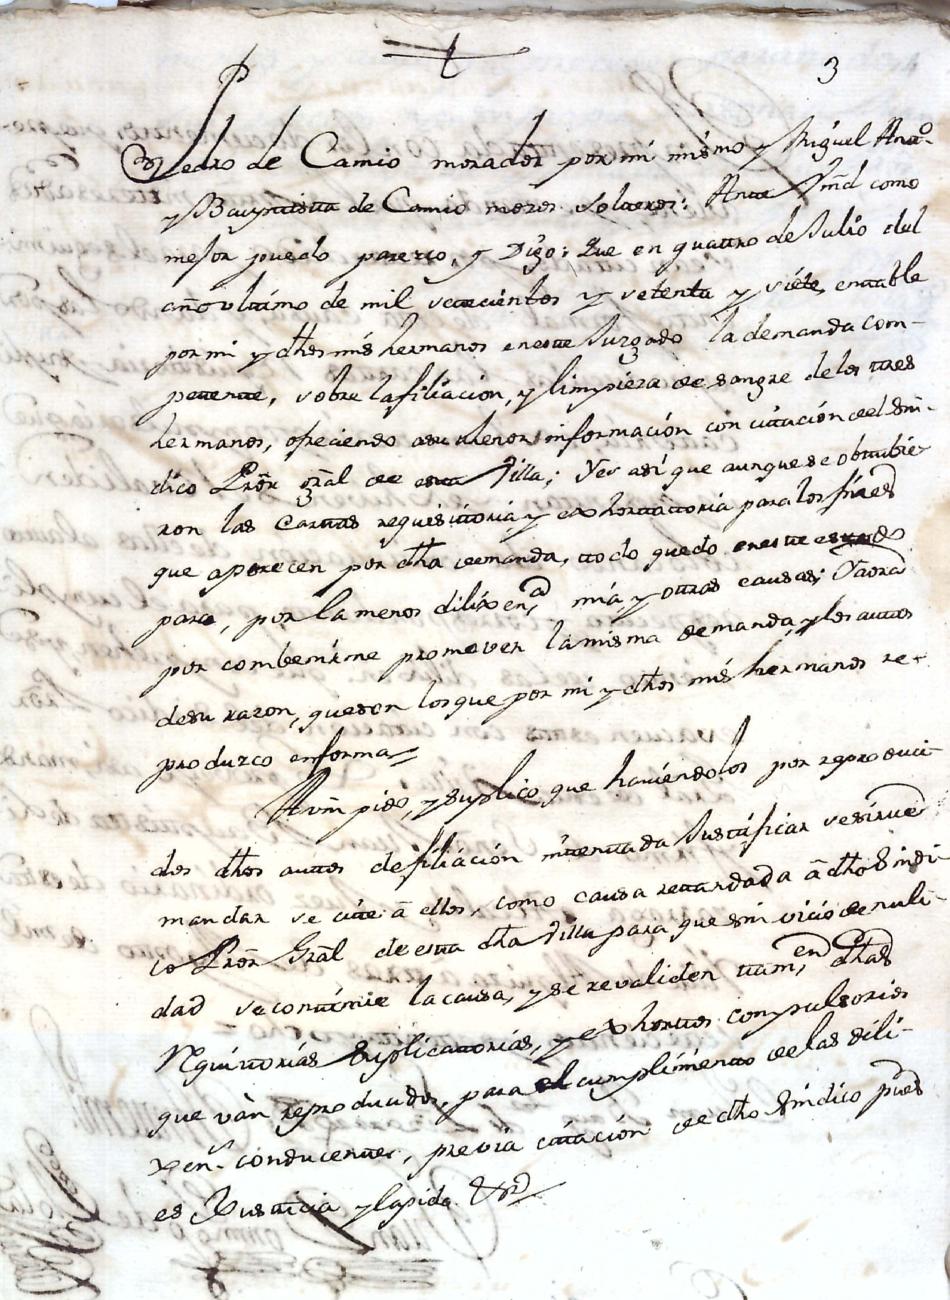 3
Pedro de Camio morador por mi mismo y Miguel Anto.
y Bauptista de Camio mozos solteros: Ante Vmd como
mejor puedo parezco, y Digo: Que en quattro de Julio del
año ultimo de mil setecientos y setenta y siéte, entable
por mi y dhos mis hermanos en este Juzgado la demanda com-
petente, sobre la filiacion, y limpieza de sangre de los tres
hermanos, ofreciendo asu thenor información con citación del Sin-
dico Prõr gral de esta Villa; Yes así que aunque se obtubie-
ron las Carttas requisittoria y exhorttatoria para los fines
que aparecen por dha demanda, ttodo quedo en este estado
para, por la menos dilixena. mia, y otras causas; Yaora
por combenirme promover la misma demanda, y los auttos
de su razon, que son los que por mi y dhos mis hermanos re-
produzco en forma=
A Vm pido, y suplico, que haviéndolos por reproduci-
dos dhos auttos de filiación intentada Justificar se sirue
mandar se cite â ellos, como causa retardada â dho Sindi-
co Prõr Grãl de esta dha Villa para que sin vicio de nuli-
dad se continúe la causa, y se revaliden tam,en dhas
Requisitorias Suplicattorias, y exhorttos compulsorios
que ván reproducidos, para el cumplimiento de las dili-
xen.s conducentes, previa citación de dho Sindico pues
es Justicia y la pido &ra